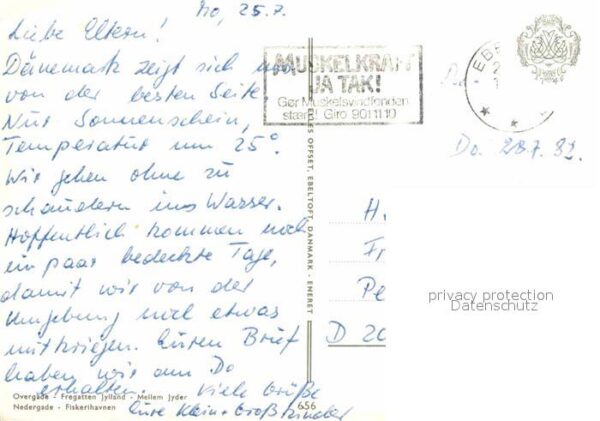 Mo, 25.7.
Liebe Eltern!
Dänemark zeigt sich nun
von der besten Seite.
Nur Sonnenschein,
Temperatur um 25°.
Wir gehen ohne zu
schaudern ins Wasser.
Hoffentlich kommen noch
ein paar bedeckte Tage,
damit wir von der
Umgebung noch etwas
mitkriegen. Euren Brief
haben wir am Do
erhalten. Viele Grüße
Eure Klein + Großkinder
Overgade - Fregatten Jylland - Mellem Jyder
Nedergade - Fiskerihavnen
656
ELLES OFFSET, EBELTOFT, DANMARK - ENERET
MUSKELKRAFT
JA TAK!
Gør Muskelsvindfonden
stærk! Giro 901 11 10
EBE
Do. 28.7.
H.
Fr
Pe
D 20
privacy protection
Datenschutz